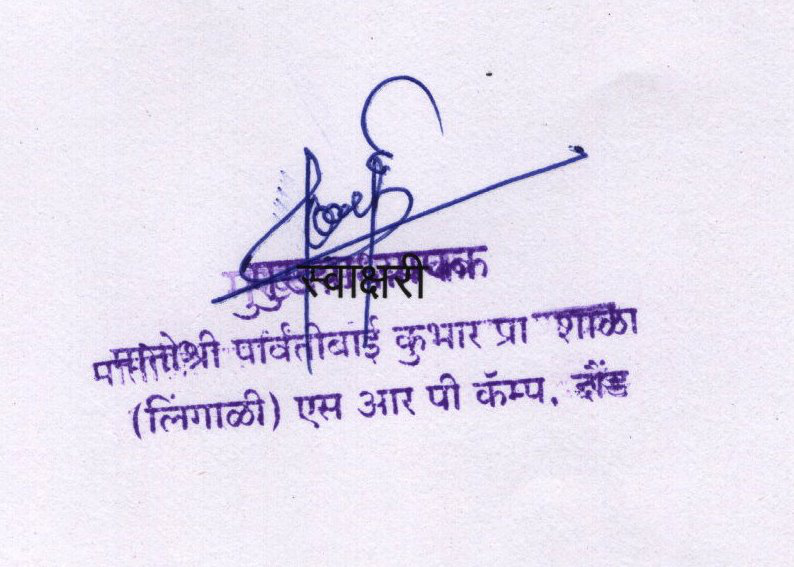 मुख्याध्यापक
स्वाक्षरी
मातोश्री पार्वतीबाई कुभार प्रा शाळा
(लिंगाळी) एस आर पी कॅम्प. दौंड